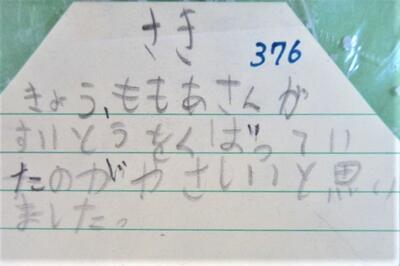 さき
376
きょう、ももあさんが
すいとうをくばってい
たのがやさしいと思い
ました。